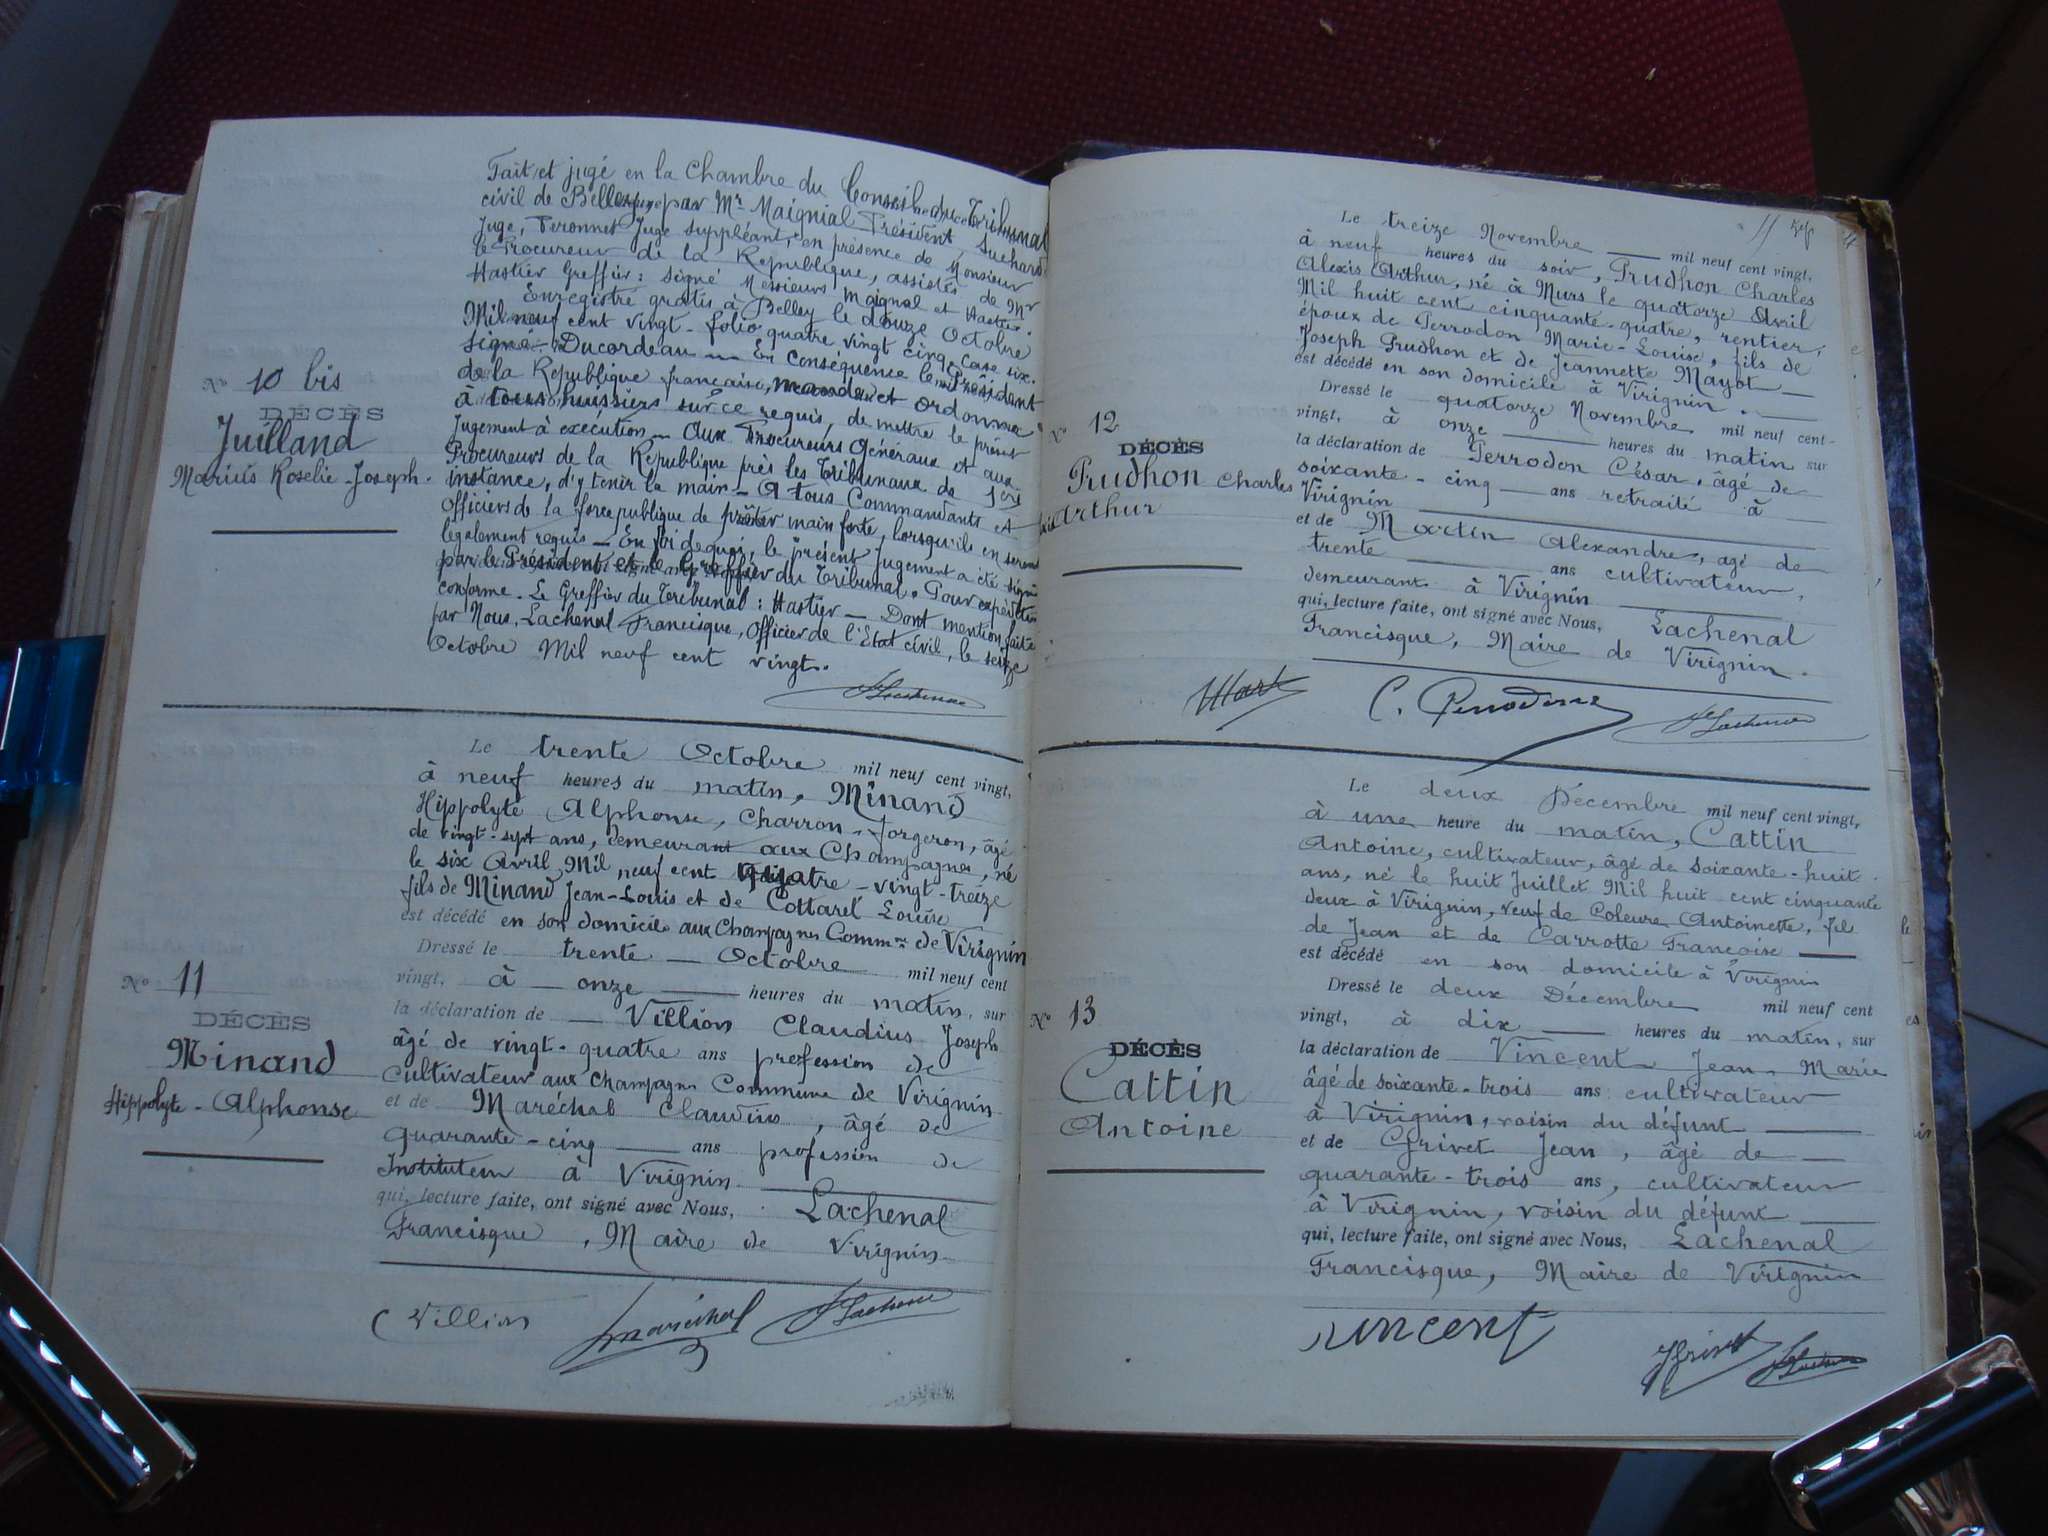 Fait et jugé en la Chambre du Conseil du Tribunal
civil de Belley par Mr Maignial Président, Suchard
Juge, Peronnet Juge suppléant, en présence de Monsieur
le Procureur de la Republique, assistés de Mr
Hastier Greffier: signé Messieurs Maignal et Hastier.
Enregistré gratis à Belley le douze Octobre
Mil neuf cent vingt - folio quatre vingt cinq case six.
Signé - Ducordeau — En Conséquence le Président
de la Republique française, mande et ordonne
à tous huissiers sur ce requis, de mettre le présent
Jugement à exécution — Aux Procureurs Généraux et aux
Procureurs de la Republique près les Tribunaux de 1ere
instance, d'y tenir la main — A tous Commandants et
Officiers de la force publique de prêter main forte, lorsqu'ils en seront
légalement requis — En foi de quoi, le présent Jugement a été signé
par le Président et le Greffier du Tribunal. Pour expédition
conforme. Le Greffier du Tribunal: Hastier — Dont mention faite
par Nous, Lachenal Francisque, Officier de l'Etat civil, le seize
Octobre Mil neuf cent vingt.
No 10 bis
DÉCÈS
Juilland
Marius Roselie-Joseph.
Le trente Octobre mil neuf cent vingt,
à neuf heures du matin, Minand
Hippolyte Alphonse, Charron-forgeron, âgé
de vingt-sept ans, demeurant aux Champagnes, né
le six Avril Mil neuf cent quatre-vingt-treize
fils de Minand Jean-Louis et de Cottarel Louise
est décédé en son domicile aux Champagnes Commne de Virignin
Dressé le trente — Octobre mil neuf cent
vingt, à onze heures du matin, sur
la déclaration de Villion Claudius Joseph
âgé de vingt-quatre ans profession de
Cultivateur aux Champagnes Commune de Virignin
et de Maréchal Claudius, âgé de
quarante-cinq ans profession de
Instituteur à Virignin
qui, lecture faite, ont signé avec Nous, Lachenal
Francisque, Maire de Virignin
No 11
DÉCÈS
Minand
Hippolyte - Alphonse
Villion Maréchal Lachenal
Le treize Novembre mil neuf cent vingt,
à neuf heures du soir, Prudhon Charles
Alexis Arthur, né à Murs le quatorze Avril
Mil huit cent cinquante-quatre, rentier,
époux de Perrodon Marie-Louise, fils de
Joseph Prudhon et de Jeannette Mayot
est décédé en son domicile à Virignin.
Dressé le quatorze Novembre mil neuf cent-
vingt, à onze heures du matin sur
la déclaration de Perrodon César, âgé de
soixante-cinq ans retraité à
Virignin
et de Martin Alexandre, agé de
trente ans cultivateur,
demeurant à Virignin
qui, lecture faite, ont signé avec Nous, Lachenal
Francisque, Maire de Virignin.
No 12
DÉCÈS
Prudhon Charles
Arthur
Mart C. Perrodon Lachenal
Le deux Décembre mil neuf cent vingt,
à une heure du matin, Cattin
Antoine, cultivateur, âgé de soixante-huit
ans, né le huit Juillet Mil huit cent cinquante
deux à Virignin, veuf de Coleure Antoinette, fil
de Jean et de Carrotte Françoise
est décédé en son domicile à Virignin
Dressé le deux Décembre mil neuf cent
vingt, à dix heures du matin, sur
la déclaration de Vincent Jean Marie
âgé de soixante-trois ans cultivateur
à Virignin, voisin du défunt
et de Grivet Jean, âgé de
quarante-trois ans, cultivateur
à Virignin, voisin du défunt
qui, lecture faite, ont signé avec Nous, Lachenal
Francisque, Maire de Virignin
No 13
DÉCÈS
Cattin
Antoine
Vincent JGrivet Lachenal